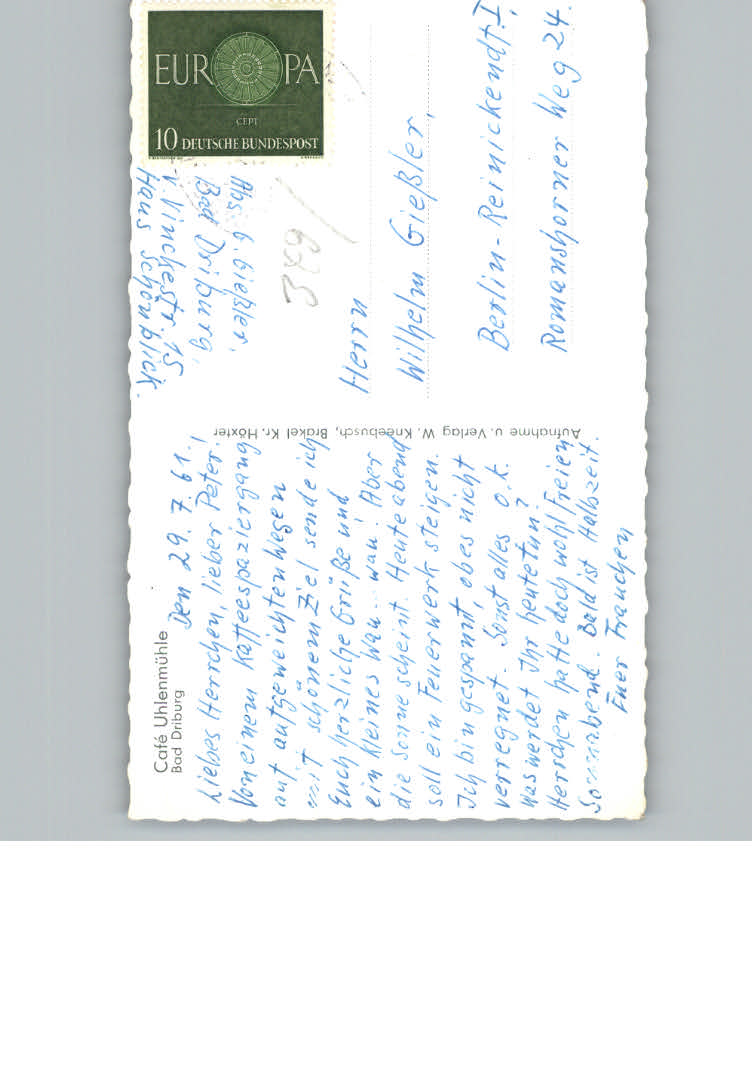 Café Uhlenmühle
Bad Driburg
Den 29. 7. 61.
Liebes Herrchen, lieber Peter!
Von einem Kaffeespaziergang
auf aufgeweichten Wegen
mit schönem Ziel sende ich
Euch herzliche Grüße und
ein kleines Wau.. wau. Aber
die Sonne scheint. Heute abend
soll ein Feuerwerk steigen.
Ich bin gespannt, ob es nicht
verregnet. Sonst alles o.k.
Was werdet Ihr heute tun?
Herrchen hatte doch wohl freien
Sonnabend. Bald ist Halbzeit.
Euer Frauchen
Aufnahme u. Verlag W. Kneebusch, Brakel Kr. Höxter
EUROPA
CEPT
10 DEUTSCHE BUNDESPOST
Abs. G. Gießler,
Bad Driburg,
v. Vinckestr. 15
Haus Schönblick.
349
Herrn
Wilhelm Gießler,
Berlin-Reinickendf. I,
Romanshorner Weg 24.